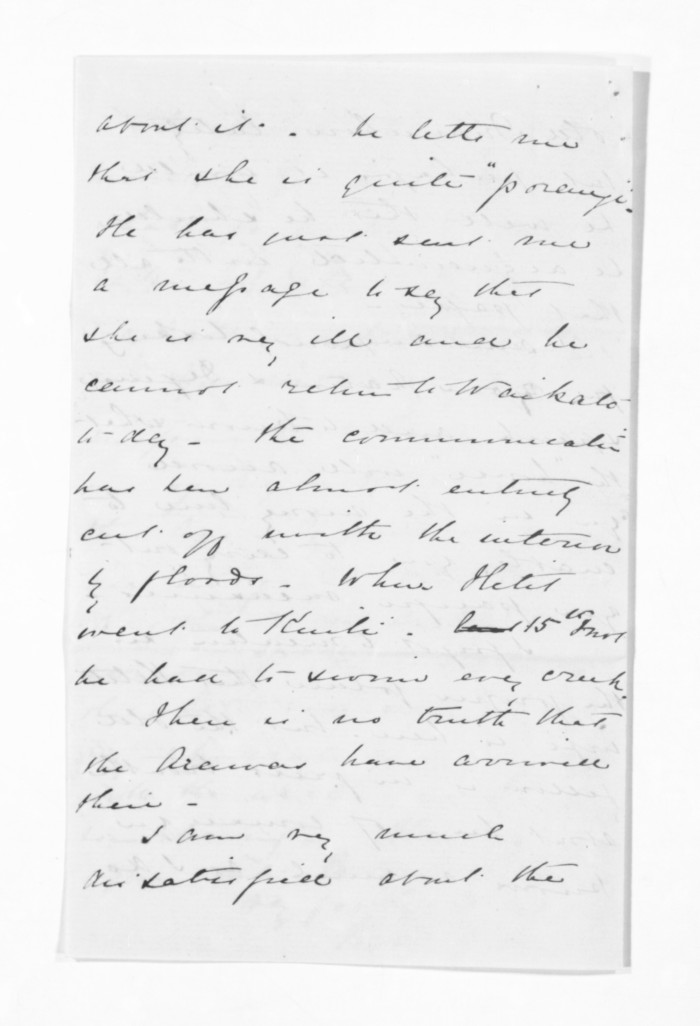 about it. he tells me
that she is quite "porangi".
He has just sent me
a message to say that
she is very ill and he
cannot return to Waikato
to-day - the communication
has been almost entirely
cut off with the interior
by floods - When Hetit
went to Kuiti. 15th Inst
he had to swim every creek.
There is no truth that
the Arawas have arrived
there -
I am very much
dissatisfied about the